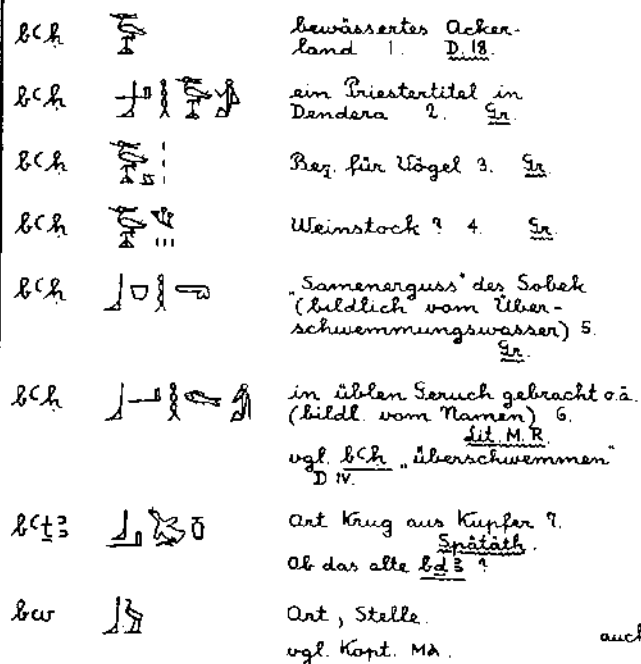 bꜥḥ bewässertes Acker-
land 1. D. 18.
bꜥḥ ein Priestertitel in
Dendera 2. Gr.
bꜥḥ Bez. für Vögel 3. Gr.
bꜥḥ Weinstock ? 4. Gr.
bꜥḥ „Samenerguss" des Sobek
(bildlich vom Über-
schwemmungswasser) 5.
Gr.
bꜥḥ in üblen Geruch gebracht o.ä.
(bildl. vom Namen) 6.
Lit. M. R.
vgl. bꜥḥ „überschwemmen"
D IV.
bꜥṯꜣ Art Krug aus Kupfer 7.
Spätäth.
Ob das alte bḏꜣ ?
bw Ort, Stelle.
auch
vgl. Kopt. ⲙⲁ.